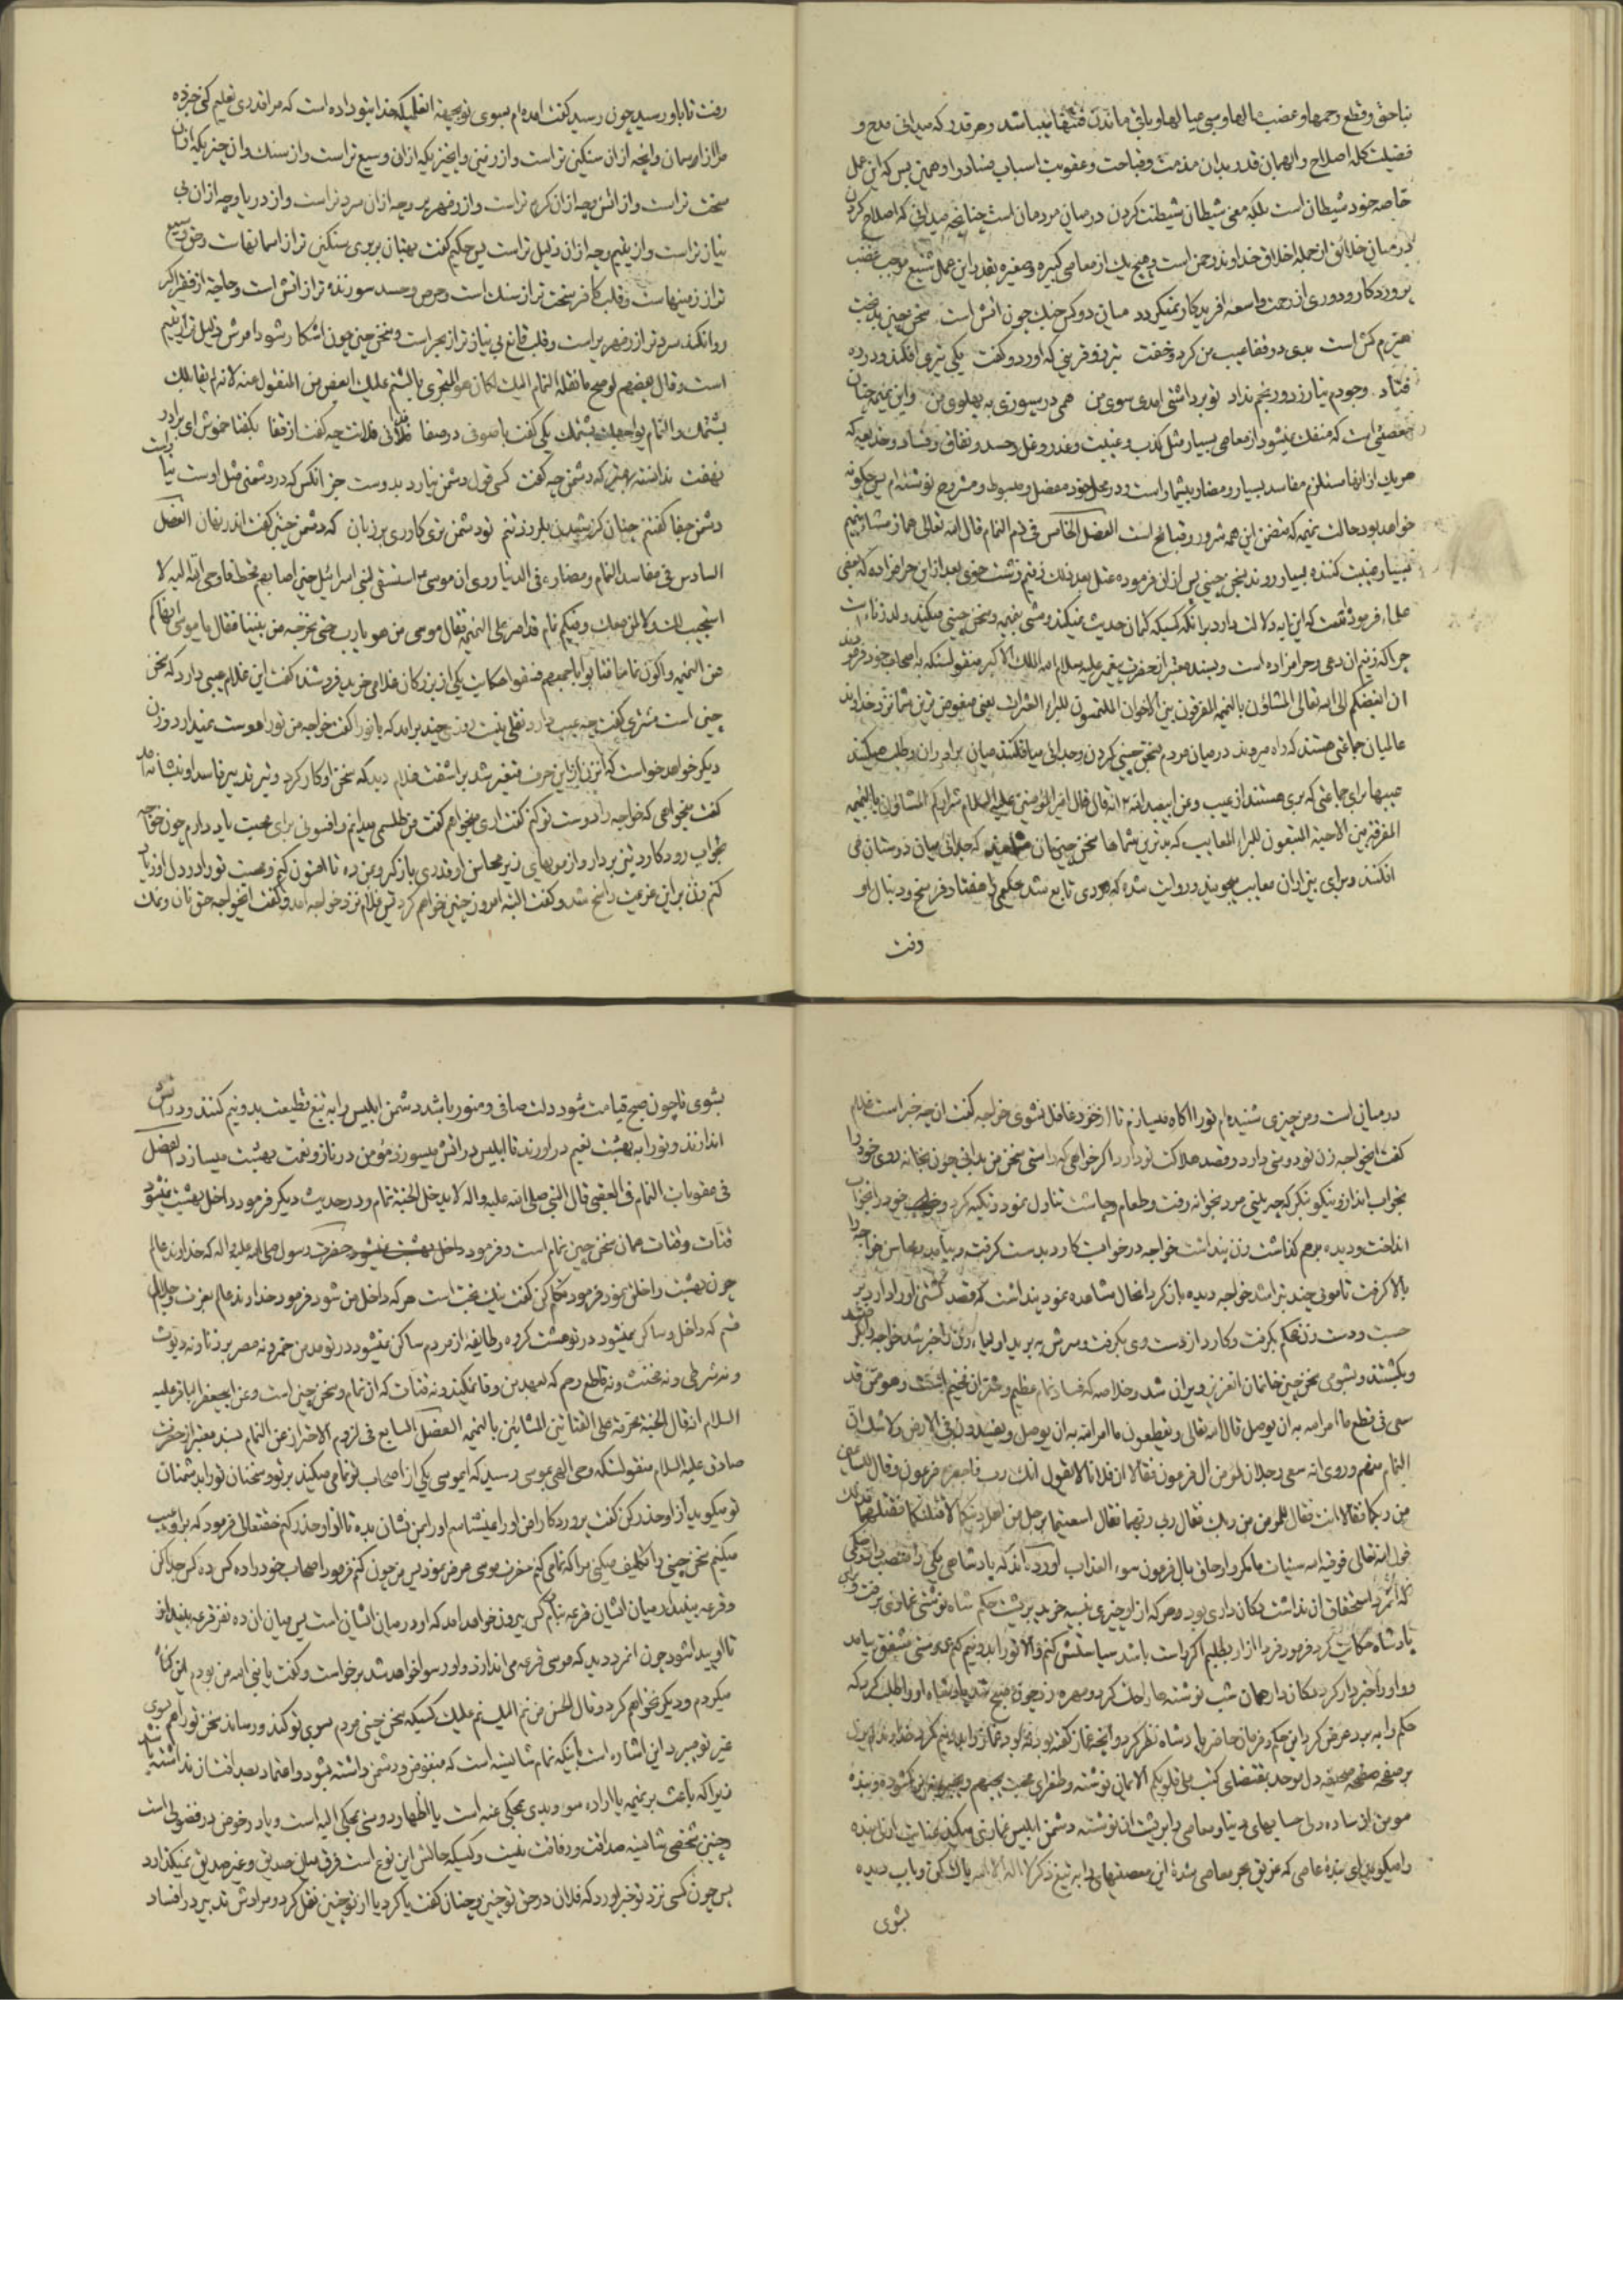 بناحق و قطع رحمها و غضب مالها و بی عیالها و باقی ماندن فتنها میباشد و هر قدر که میدانی مدح و
فضیلت کله اصلاح و ابهمان قدر بدان مذمت و قباحت و عقوبت اسباب فساد را و همین بس که این عمل
خاصه خود شیطان است بلکه معنی شیطان شیطنت کردن در میان مردمان است چنانچه میدانی که اصلاح کردن
در میان خلائق از جمله اخلاق خداوند رحمن است و هیچ یک از معاصی کبیره و صغیره بقدر این عمل شنیع موجب غضب
پروردکار و دوری از رحمت واسعه افریدکار نمیکردد میان دو کس جنک چون اتش است سخن چین بدبخت
هیزم کش است بدی در قفا عیب من کرد و خفت بتر زو قرینی که اورد و کفت یکی تیری افکند و در ره
فتاد وجودم نیازرد و رنجم نداد تو برداشتی امدی سوی من همی در سپوزی به پهلوی من و این نمیمه چنان
معصیتی است که منفک نمیشود از معاصی بسیار مثل کذب و غیبت و غدر و غل و حسد و نفاق و فساد و خدیعه که
هر یک از انها مستلزم مفاسد بسیار و مضار بیشمار است و در محل خود مفصل و مبسوط و مشروح نوشته ام پس چکونه
خواهد بود حالت نمیمه که متضمن این همه شرور و قبائح است الفصل الخامس فی ذم النمام قال الله تعالی هماز مشاء بنمیم
بسیار غیبت کننده بسیار رونده بسخن چینی پس از ان فرموده عتل بعد ذلک زنیم زشت خوی بعد از این حرامزاده که بعضی
علماء فرموده است که این ایه دلالت دارد بر انکه کسیکه کتمان حدیث نمیکند و مشی بنمیمه و سخن چینی میکند ولد زنا است
چرا که زنیم ان دعی و حرامزاده است و بسند معتبر از حضرت پیغمبر علیه سلام الله الملک الاکبر منقولست که به اصحاب خود فرمودند
ان ابغضکم الی الله تعالی المشاؤن بالنمیمه المفرقون بین الاخوان الملتمسون للبراء العثرات یعنی مبغوض ترین شما نزد خداوند
عالمیان جماعتی هستند که راه میروند در میان مردم بسخن چینی کردن و جدائی میافکنند میان برادران و طلب میکنند
عیبها برای جماعتی که بری هستند از عیب و عن ابیعبدالله ع انه قال قال امیر المؤمنین علیه السلام شرارکم المشاؤن بالنمیمه
المفرقون بین الاحبه المبتغون للبراء المعایب که بدترین شماها سخن چینان که جدائی میان دوستان می
افکنند و برای بیزاران معایب میجویند و روایت شده که مردی تابع شد حکیمی را هفتاد فرسخ و دنبال او
رفت
رفت تا باو رسید چون رسید کفت امده ام بسوی تو بجهة انعلمیکه خدا بتو داده است که مرا قدری تعلیم کنی خبر ده
مرا از اسمان و انچه از ان سنکین تر است و از زمین و انچیزیکه از ان وسیع تر است و از سنک و ان چیزیکه از ان
سخت تر است و از اتش و چه از ان کرم تر است و از زمهریر و چه از ان سرد تر است و از دریا و چه از ان بی
نیاز تر است و از یتیم و چه از ان ذلیل تر است پس حکیم کفت بهتان بر بری سنکین تر از اسمانهاست و حق وسیع
تر از زمینهاست و قلب کافر سخت تر از سنک است و حرص و حسد سوزنده تر از اتش است و حاجة از فقرا اکر
روا نکند سرد تر از زمهریر است و قلب قانع بی نیاز تر از بحر است و سخن چین چون اشکار شود امرش ذلیل تر از یتیم
است و قال بعضهم لو صح ما نقله النمام الیک لکان هو المجتری بالشتم علیک ابغض من المنقول عنه لانه لم یقابلک
بشتمک و النمام یواجهک بشتمک یکی کفت با صوفی در صفا فلانی فلانت چه کفت از قفا بکفتا خموش ای برادر
بخفت ندانسته بهتر که دشمن چه کفت کسی قول دشمن نیارد بدوست جز انکس که در دشمنی مثل اوست نیارست
دشمن جفا کفتنم چنان کز شنیدن بلرزد تنم تو دشمن تری کاوری بر زبان که دشمن چنین کفت اندر نهان الفصل
السادس فی مفاسد النمام و مضاره فی الدنیا روی ان موسی ع استسقی لبنی اسرائیل حین اصابهم قحط فاوحی الله الیه لا
استجیب لک و لا لمن معک و فیکم نمام قد اصر علی النمیمه فقال موسی من هو یا رب حتی نخرجه من بیننا فقال یا موسی انهاکم
عن النمیمه و اکون نماما فتابوا باجمعهم فسقوا حکایت یکی از بزرکان غلامی خرید فروشنده کفت این غلام عیبی دارد که سخن
چین است مشتری کفت چه عیب دارد نقلی نیست روزی چند برامد که بانو را کفت خواجه من تو را دوست نمیدارد و زن
دیکر خواهد خواست که از این حرف متغیر شد براشفت غلام دید که سخن او کار کرد و تیر تدبیر فاسد او بنشانه امد
کفت میخواهی که خواجه را دوست تو کنم کفت اری میخواهم کفت من طلسمی میدانم و افسونی برای محبت یاد دارم چون خواجه
بخواب رود کارد تیز بردار و از مویهای زیر محاسن او قدری باز کرو بمن ده تا افسون کنم و محبت تو را در دل او زیاد
کنم زن بر این عزیمت راسخ شد و کفت البته امروز چنین خواهم کرد پس غلام نزد خواجه امد و کفت ایخواجه حق نان و نمک
در میانی است و من چیزی شنیده ام تو را اکاه میسازم تا از خود غافل نشوی خواجه کفت ان چه خبر است غلام
کفت ایخواجه زن تو دوستی دارد و قصد هلاکت تو دارد اکر خواهی که راستی سخن من بدانی چون بخانه روی خود را
بخواب انداز و نیکو بنکر که چه بینی مرد بخوانه رفت و طعام چاشت تناول نمود و تکیه کرد و خود را بخواب
انداخت و دیده برهم کذاشت زن پنداشت خواجه در خوابست کارد بدست کرفت و بیامد و محاسن خواجه را
بالا کرفت تا موئی چند بتراشد خواجه دیده باز کرد انحال مشاهده نمود پنداشت که قصد کشتن او دارد بر
جست و دست زن محکم بکرفت و کارد از دست وی بکرفت و سرش به برید اولیاء زن را خبر شد خواجه را بکرفتند
و بکشتند و بشومی سخن چین خانمان انعزیز ویران شد و خلاصه که فساد نمام عظیم و ضرر ان فخیم است و هو ممن قد
سعی فی قطع ما امر الله به ان یوصل قال الله تعالی و یقطعون ما امر الله به ان یوصل و یفسدون فی الارض و لا شک ان
النمام منهم و روی انه سعی رجلان لمؤمن ال فرعون فقالا ان فلانا لا یقول انک رب فاحضره فرعون و قال للساعیین
من ربکما فقالا انت فقال للمؤمن من ربک فقال ربی ربهما فقال سعیتما برجل من اهل دینکما لاقتلنکما فقتلهما فذلک
قول الله تعالی فوقیه الله سیئات ما مکروا و حاق بال فرعون سوء العذاب اورده اند که پادشاهی یکی را منصب داد که
که انمرد استحقاق ان نداشت دکان داری بود و هر که از او چیزی نسیه خرید بر پشت حکم شاه نوشتی غمازی برفت و برای
پادشاه حکایت کرد فرمود فردا از او بطلبم اکر راست باشد سیاستش کنم و الا تو را بدو نیم کنم دوستی مشفق بیامد
و او را خبردار کرد دکان دار همان شب نوشته ها را حک کرد و مهره زد چون صبح شد پادشاه او را طلب کرد که
حکم را به برد عرض کرد این حکم و فرمان حاضر پادشاه نظر کرد و انچه غماز کفته بود نبود غماز را بدو نیم کرد خداوند ازل
بر صفحه صحیفه دل موحد بمقتضای کتب فی قلوبکم الایمان نوشته و طغرای محبت یحبهم و یحبونه بر ان کشوده و بنده
مومن از ساده دلی حسابهای دنیا و معاصی را بر پشت ان نوشته دشمن ابلیس غمازی میکند عنایت ازلی بنده
را میکوید ای بنده عاصی که غریق بحر معاصی شدهٔ این معصیتهای را به تیغ ذکر لا اله الا الله پاک کن و باب دیده
بشوی
بشوی تا چون صبح قیامت شود دلت صافی و منور باشد دشمن ابلیس را به تیغ قطیعت بدو نیم کنند و در اتش
اندازند و تو را به بهشت نعیم در اورند تا ابلیس در اتش میسوزد مؤمن در ناز و نعمت بهشت میسازد الفصل
فی عقوبات النمام فی العقبی قال النبی صلی الله علیه و اله لا یدخل الجنة نمام و در حدیث دیکر فرمود داخل بهشت نمیشود
قتات و قتات همان سخن چین نمام است و فرمود داخل بهشت نمیشود حضرت رسول صلی الله علیه و اله که خداوند عالم
چون بهشت را خلق نمود فرمود تکلم کن کفت نیک بخت است هر که داخل من شود فرمود خداوند عالم بعزت و جلالم
قسم که داخل و ساکن نمیشود در تو هشت کروه و طایفه از مردم ساکن نمیشود در تو مدمن خمر و نه مصر بر زنا و نه دیوث
و نه شرطی و نه مخنث و نه قاطع رحم که بعهد من وفا نمیکند و نه قتات که ان نمام و سخن چین است و عن ابیجعفر الباقر علیه
السلام انه قال الجنة محرمة علی القتاتین المشائین بالنمیمه الفصل السابع فی لزوم الاحتراز عن النمام بسند معتبر از حضرت
صادق علیه السلام منقولست که وحی الهی بموسی رسید که ایموسی یکی از اصحاب تو نمامی میکند بر تو و سخنان تو را بدشمنان
تو میکوید از او حذر کن کفت پروردکارا من او را نمیشناسم او را بمن نشان بده تا از او حذر کنم حقتعالی فرمود که بر او عیب
میکنم سخن چینی را تکلیف میکنی مرا که نمامی کنم حضرت موسی عرض نمود پس من چون کنم فرمود اصحاب خود را ده کس ده کس جدا کن
و قرعه بیفکن در میان ایشان قرعه بنام کس بیرون خواهد امد که او در میان ایشان است پس میان ان ده نفر قرعه بینداز
تا او پیدا شود چون انمرد دید که موسی قرعه می اندازد و او رسوا خواهد شد برخواست و کفت یا نبی الله من بودم این کناه
میکردم و دیکر نخواهم کرد و قال الحسن من نم الیک نم علیک کسیکه سخن چینی مردم بسوی تو کند و رساند سخن تو را هم بسوی
غیر تو میبرد این اشاره است باینکه نمام شایسته است که مبغوض و دشمن داشته شود و اعتماد بصداقتشان نداشته باشد
زیرا که باعث بر نمیمه یا اراده سوء و بدی بمحکی عنه است یا اظهار دوستی بمحکی الیه است و یا در خوض در فضولی است
و چنین شخصی شایسته صداقت و رفاقت نیست و کسیکه حالش این نوع است فرق میان صدیق و غیر صدیق نمیکذارد
پس چون کسی نزد تو خبر اورد که فلان در حق تو چنین و چنان کفت یا کرد یا از تو چنین نقل کرد و مرادش تدبیر در افساد